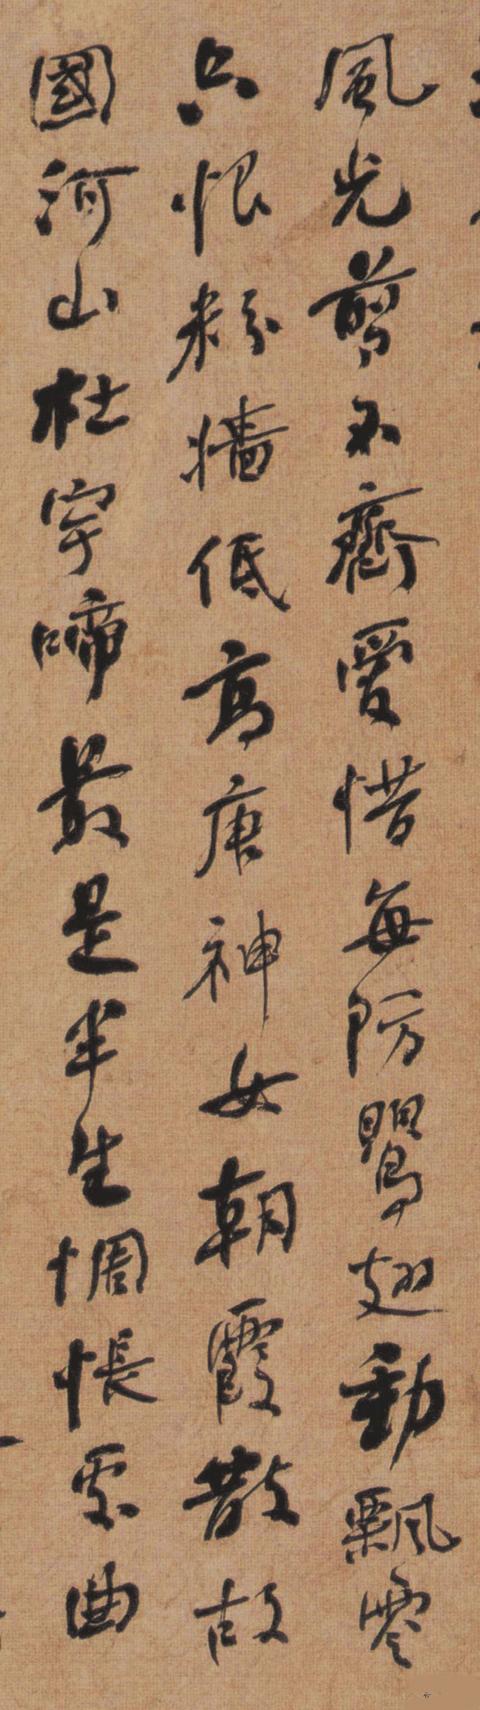 風光剪不齊愛惜每防鸎翅動飄零
只恨粉墻低高唐神女朝霞散故
國河山杜宇啼最是半生惆悵處曲